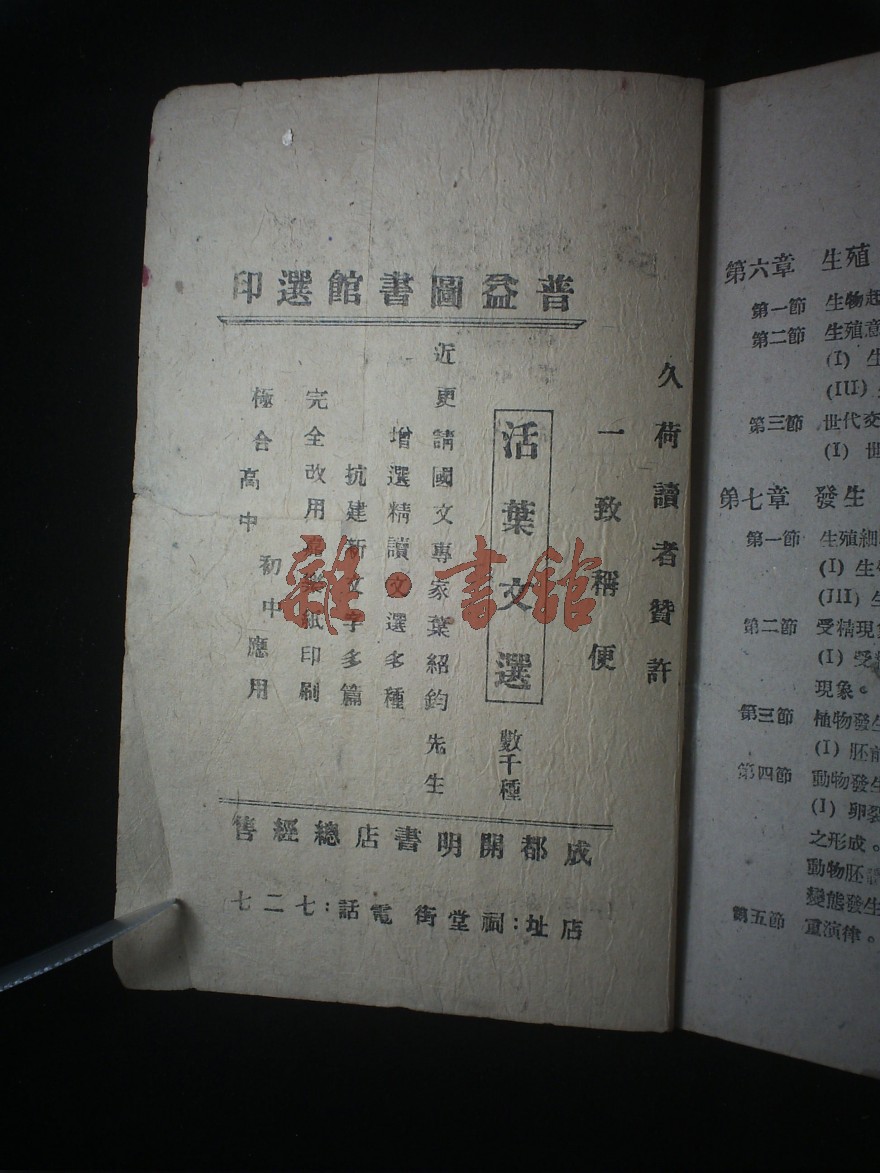 普益圖書館選印
久荷讀者贊許
一致稱便
活葉文選
數千種
近更請國文專家葉紹鈞先生
增選精讀文選多種
抗建新文字多篇
完全改用 紙印刷
極合高中初中應用
成都開明書店總經售
店址：祠堂街 電話：七二七
雜·書館
第六章 生殖
第一節 生物起
第二節 生殖意
(I) 生
(III)
第三節 世代交
(I) 世
第七章 發生
第一節 生殖細
(I) 生
(III) 生
第二節 受精現象
(I) 受精
現象。
第三節 植物發生
(I) 胚前
第四節 動物發生
(I) 卵裂
之形成。
動物胚
變態發生
第五節 重演律。